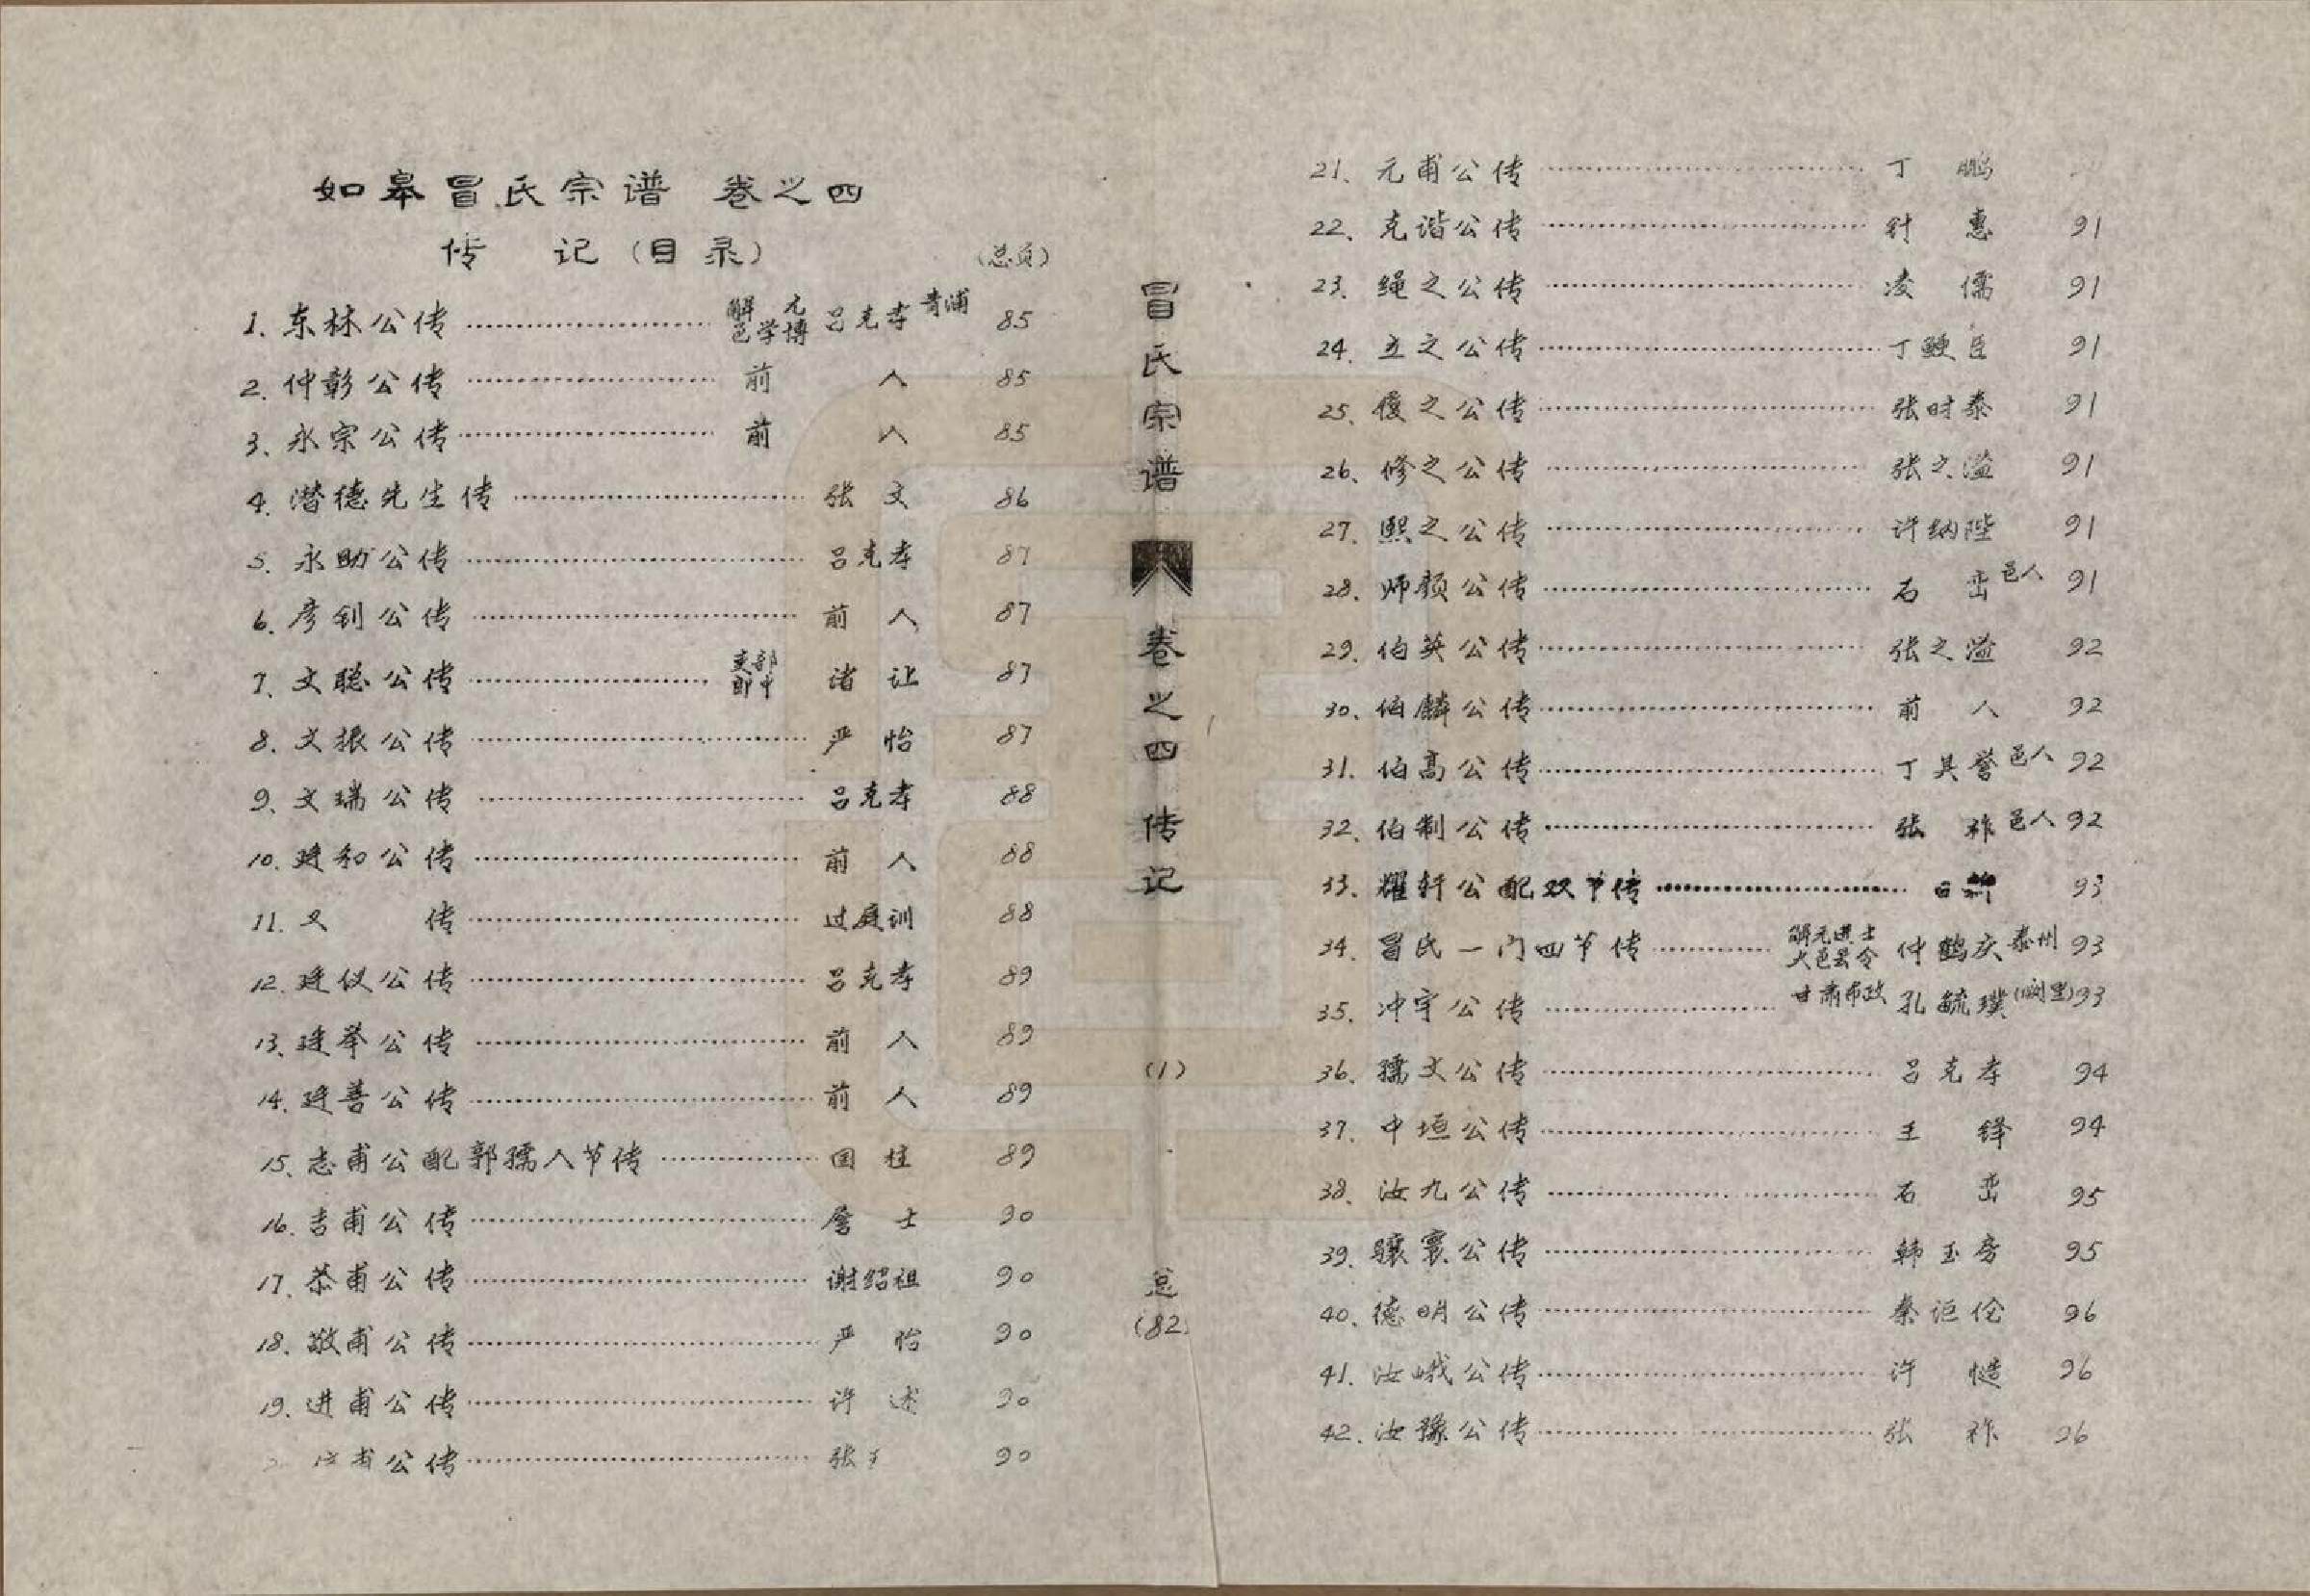 如皋冒氏宗谱 卷之四
传 记(目录) (总页)
1. 东林公传 解元 邑学博 吕克孝 青浦 85
2. 仲彰公传 前 人 85
3. 永宗公传 前 人 85
4. 潜德先生传 张文 86
5. 永助公传 吕克孝 87
6. 彦钊公传 前人 87
7. 文聪公传 吏部郎中 诸让 87
8. 文振公传 严怡 87
9. 文瑞公传 吕克孝 88
10. 廷和公传 前人 88
11. 又 传 过庭训 88
12. 廷仪公传 吕克孝 89
13. 廷举公传 前人 89
14. 廷善公传 前人 89
15. 志甫公配郭孺人节传 国柱 89
16. 吉甫公传 詹士 90
17. 恭甫公传 谢绍祖 90
18. 敬甫公传 严怡 90
19. 进甫公传 许述 90
甫公传 张 90
冒氏宗谱 卷之四 传记 (1) 总(82)
21. 元甫公传 丁鹏
22. 克谐公传 针惠 91
23. 绳之公传 凌儒 91
24. 立之公传 丁鲠臣 91
25. 復之公传 张时泰 91
26. 修之公传 张之溢 91
27. 熙之公传 许纳陛 91
28. 师颜公传 石峦 邑人 91
29. 伯英公传 张之溢 92
30. 伯麟公传 前人 92
31. 伯高公传 丁其誉 邑人 92
32. 伯制公传 张祚 邑人 92
33. 耀轩公配双节传 日新 93
34. 冒氏一门四节传 解元进士 大邑县令 仲鹤庆 泰州 93
35. 冲宇公传 甘肃布政 孔毓璞 (阙里) 93
36. 孺文公传 吕克孝 94
37. 中垣公传 王铎 94
38. 汝九公传 石峦 95
39. 骧寰公传 韩玉房 95
40. 德明公传 秦讵伦 96
41. 汝峨公传 许慥 96
42. 汝豫公传 张祚 96